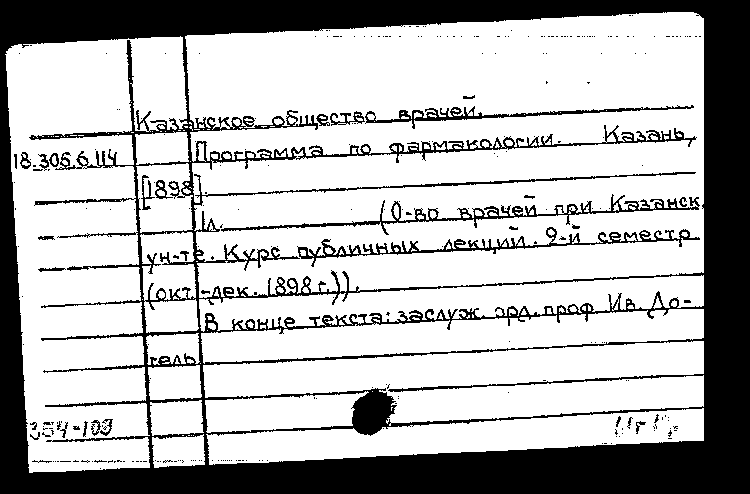 Казанское общество врачей.
18.305.6.114 Программа по фармакологии. Казань,
[1898].
1л. (О-во врачей при Казанск.
ун-те. Курс публичных лекций. 2-й семестр
(окт.-дек. 1898 г.)).
В конце текста: заслуж. орд. проф. Ив. До-
гель
354-109